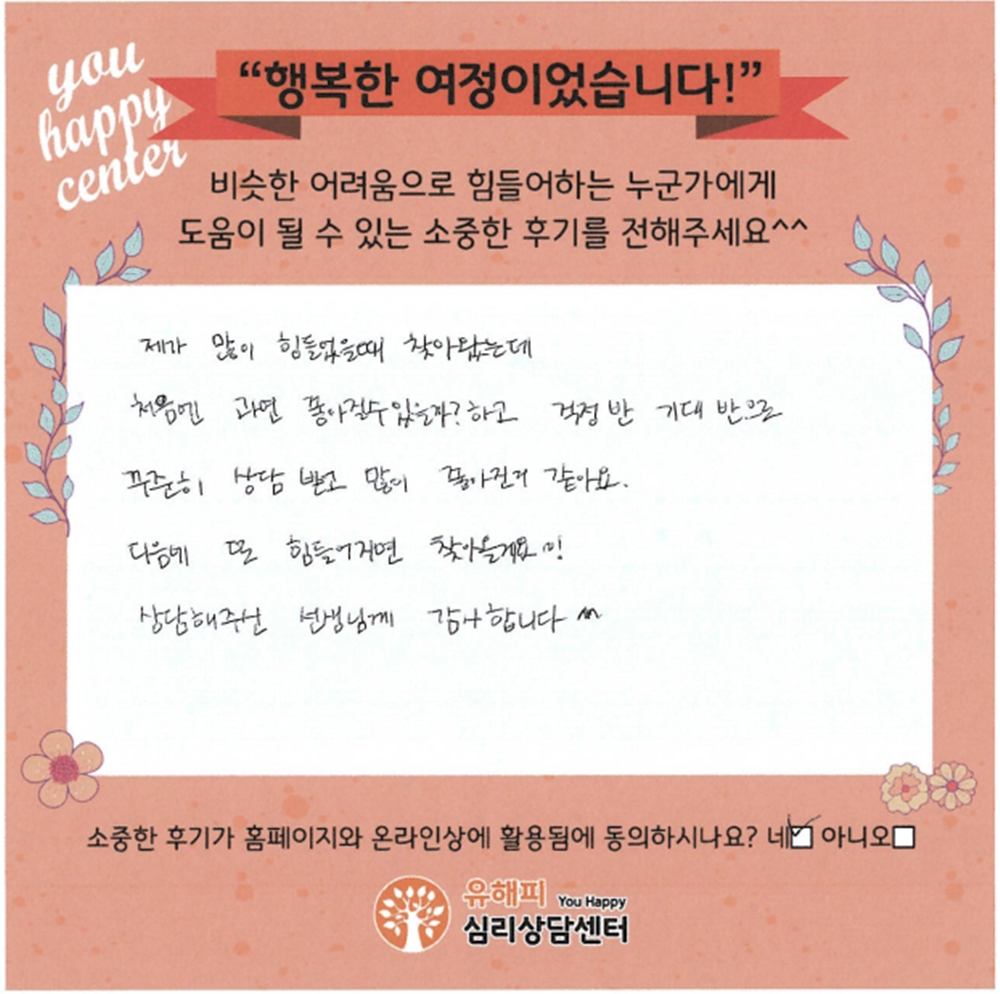 you
happy
center
“행복한 여정이었습니다!”
비슷한 어려움으로 힘들어하는 누군가에게
도움이 될 수 있는 소중한 후기를 전해주세요^^
제가 많이 힘들었을때 찾아왔는데
처음엔 과연 좋아질수있을까?하고 걱정 반 기대 반으로
꾸준히 상담 받고 많이 좋아진거 같아요.
다음에 또 힘들어지면 찾아올게요
상담해주신 선생님께 감사합니다 ^^
소중한 후기가 홈페이지와 온라인상에 활용됨에 동의하시나요? 네 아니오
유해피 You Happy
심리상담센터